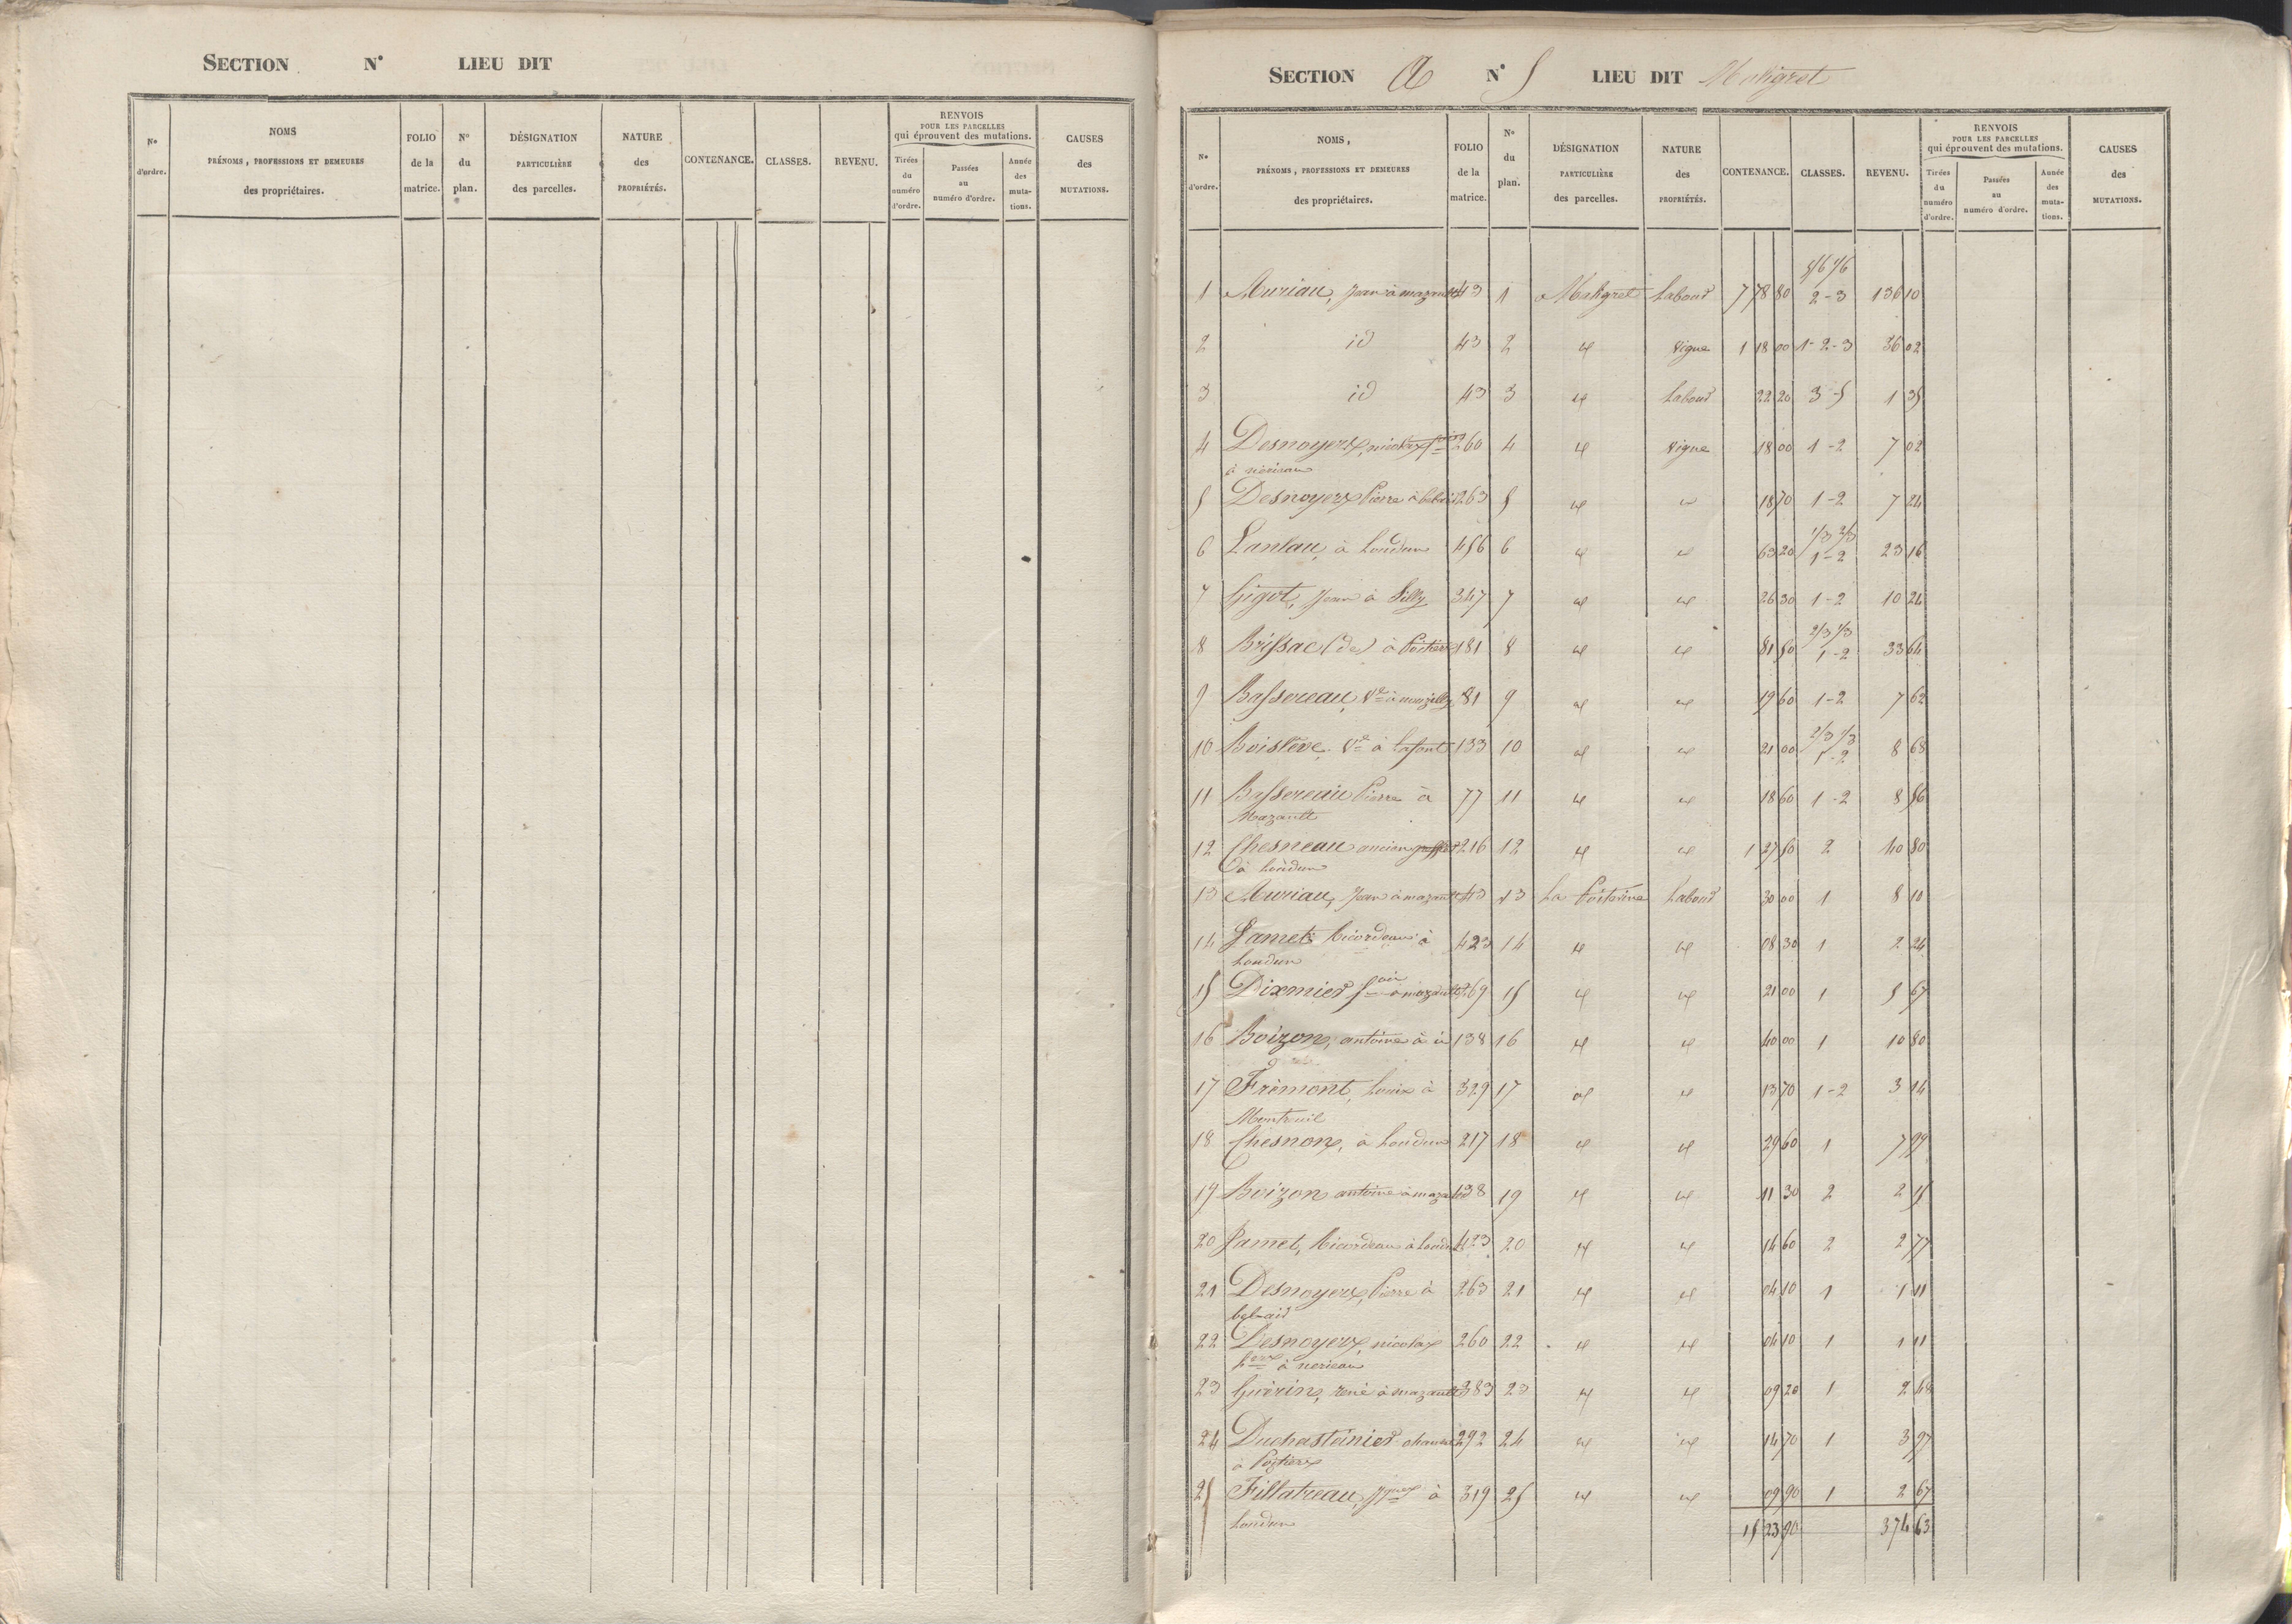 SECTION N° LIEU DIT
N° d'ordre. NOMS PRÉNOMS, PROFESSIONS ET DEMEURES des propriétaires. FOLIO de la matrice. N° du plan. DÉSIGNATION PARTICULIÈRE des parcelles. NATURE des PROPRIÉTÉS. CONTENANCE. CLASSES. REVENU. RENVOIS POUR LES PARCELLES qui éprouvent des mutations. Tirées du numéro d'ordre. Passées au numéro d'ordre. Année des mutations. CAUSES des MUTATIONS.
SECTION A N° 5 LIEU DIT Maligret
N° d'ordre. NOMS, PRÉNOMS, PROFESSIONS ET DEMEURES des propriétaires. FOLIO de la matrice. N° du plan. DÉSIGNATION PARTICULIÈRE des parcelles. NATURE des PROPRIÉTÉS. CONTENANCE. CLASSES. REVENU. RENVOIS POUR LES PARCELLES qui éprouvent des mutations. Tirées du numéro d'ordre. Passées au numéro d'ordre. Année des mutations. CAUSES des MUTATIONS.
5/6 1/6
1 Auriau, Jean à mazault 43 1 Maligret Labour 7 78 80 2-3 136 10
2 id 43 2 id vigne 1 18 00 1-2-3 36 02
3 id 43 3 id Labour 22 20 3-5 1 35
4 Desnoyers, nicolas 260 4 id vigne 18 00 1-2 7 02
5 Desnoyers Pierre à belair 263 5 id id 18 70 1-2 7 24
1/3 2/3
6 Lanlau, à Loudun 456 6 id id 63 20 1-2 23 16
7 Gigot, Jean à Silly 347 7 id id 26 30 1-2 10 24
2/3 1/3
8 Brissac (de) à Poitiers 181 8 id id 81 50 1-2 33 64
9 Bassereau, Ve à mouzilly 81 9 id id 19 60 1-2 7 62
2/3 1/3
10 Boislève Ve à Lafont 133 10 id id 21 00 1-2 8 68
11 Bassereau Pierre à 77 11 id id 18 60 1-2 8 56
Mazault
12 Chesneau ancien greffier 216 12 id id 1 27 50 2 40 80
à Loudun
13 Auriau, Jean à mazault 43 13 La Poiterine Labour 30 00 1 8 10
14 Jamet Ricordeau à 423 14 id id 08 30 1 2 24
Loudun
15 Dixmier à mazault 269 15 id id 21 00 1 5 67
16 Boizon, antoine à id 138 16 id id 40 00 1 10 80
17 Frémont, Louis à 329 17 id id 13 70 1-2 3 14
Montreuil
18 Chesnon, à Loudun 217 18 id id 29 60 1 7 99
19 Boizon antoine à mazault 138 19 id id 11 30 2 2 15
20 Jamet, Ricordeau à Loudun 423 20 id id 14 60 2 2 77
21 Desnoyers, Pierre à 263 21 id id 04 10 1 1 11
bel-air
22 Desnoyers, nicolas 260 22 id id 04 10 1 1 11
23 Guérin, rené à mazault 383 23 id id 09 20 1 2 48
24 Duchasteinier 292 24 id id 14 70 1 3 97
à Poitiers
25 Fillatreau, Jques à 319 25 id id 09 90 1 2 67
Loudun
15 23 90 374 63